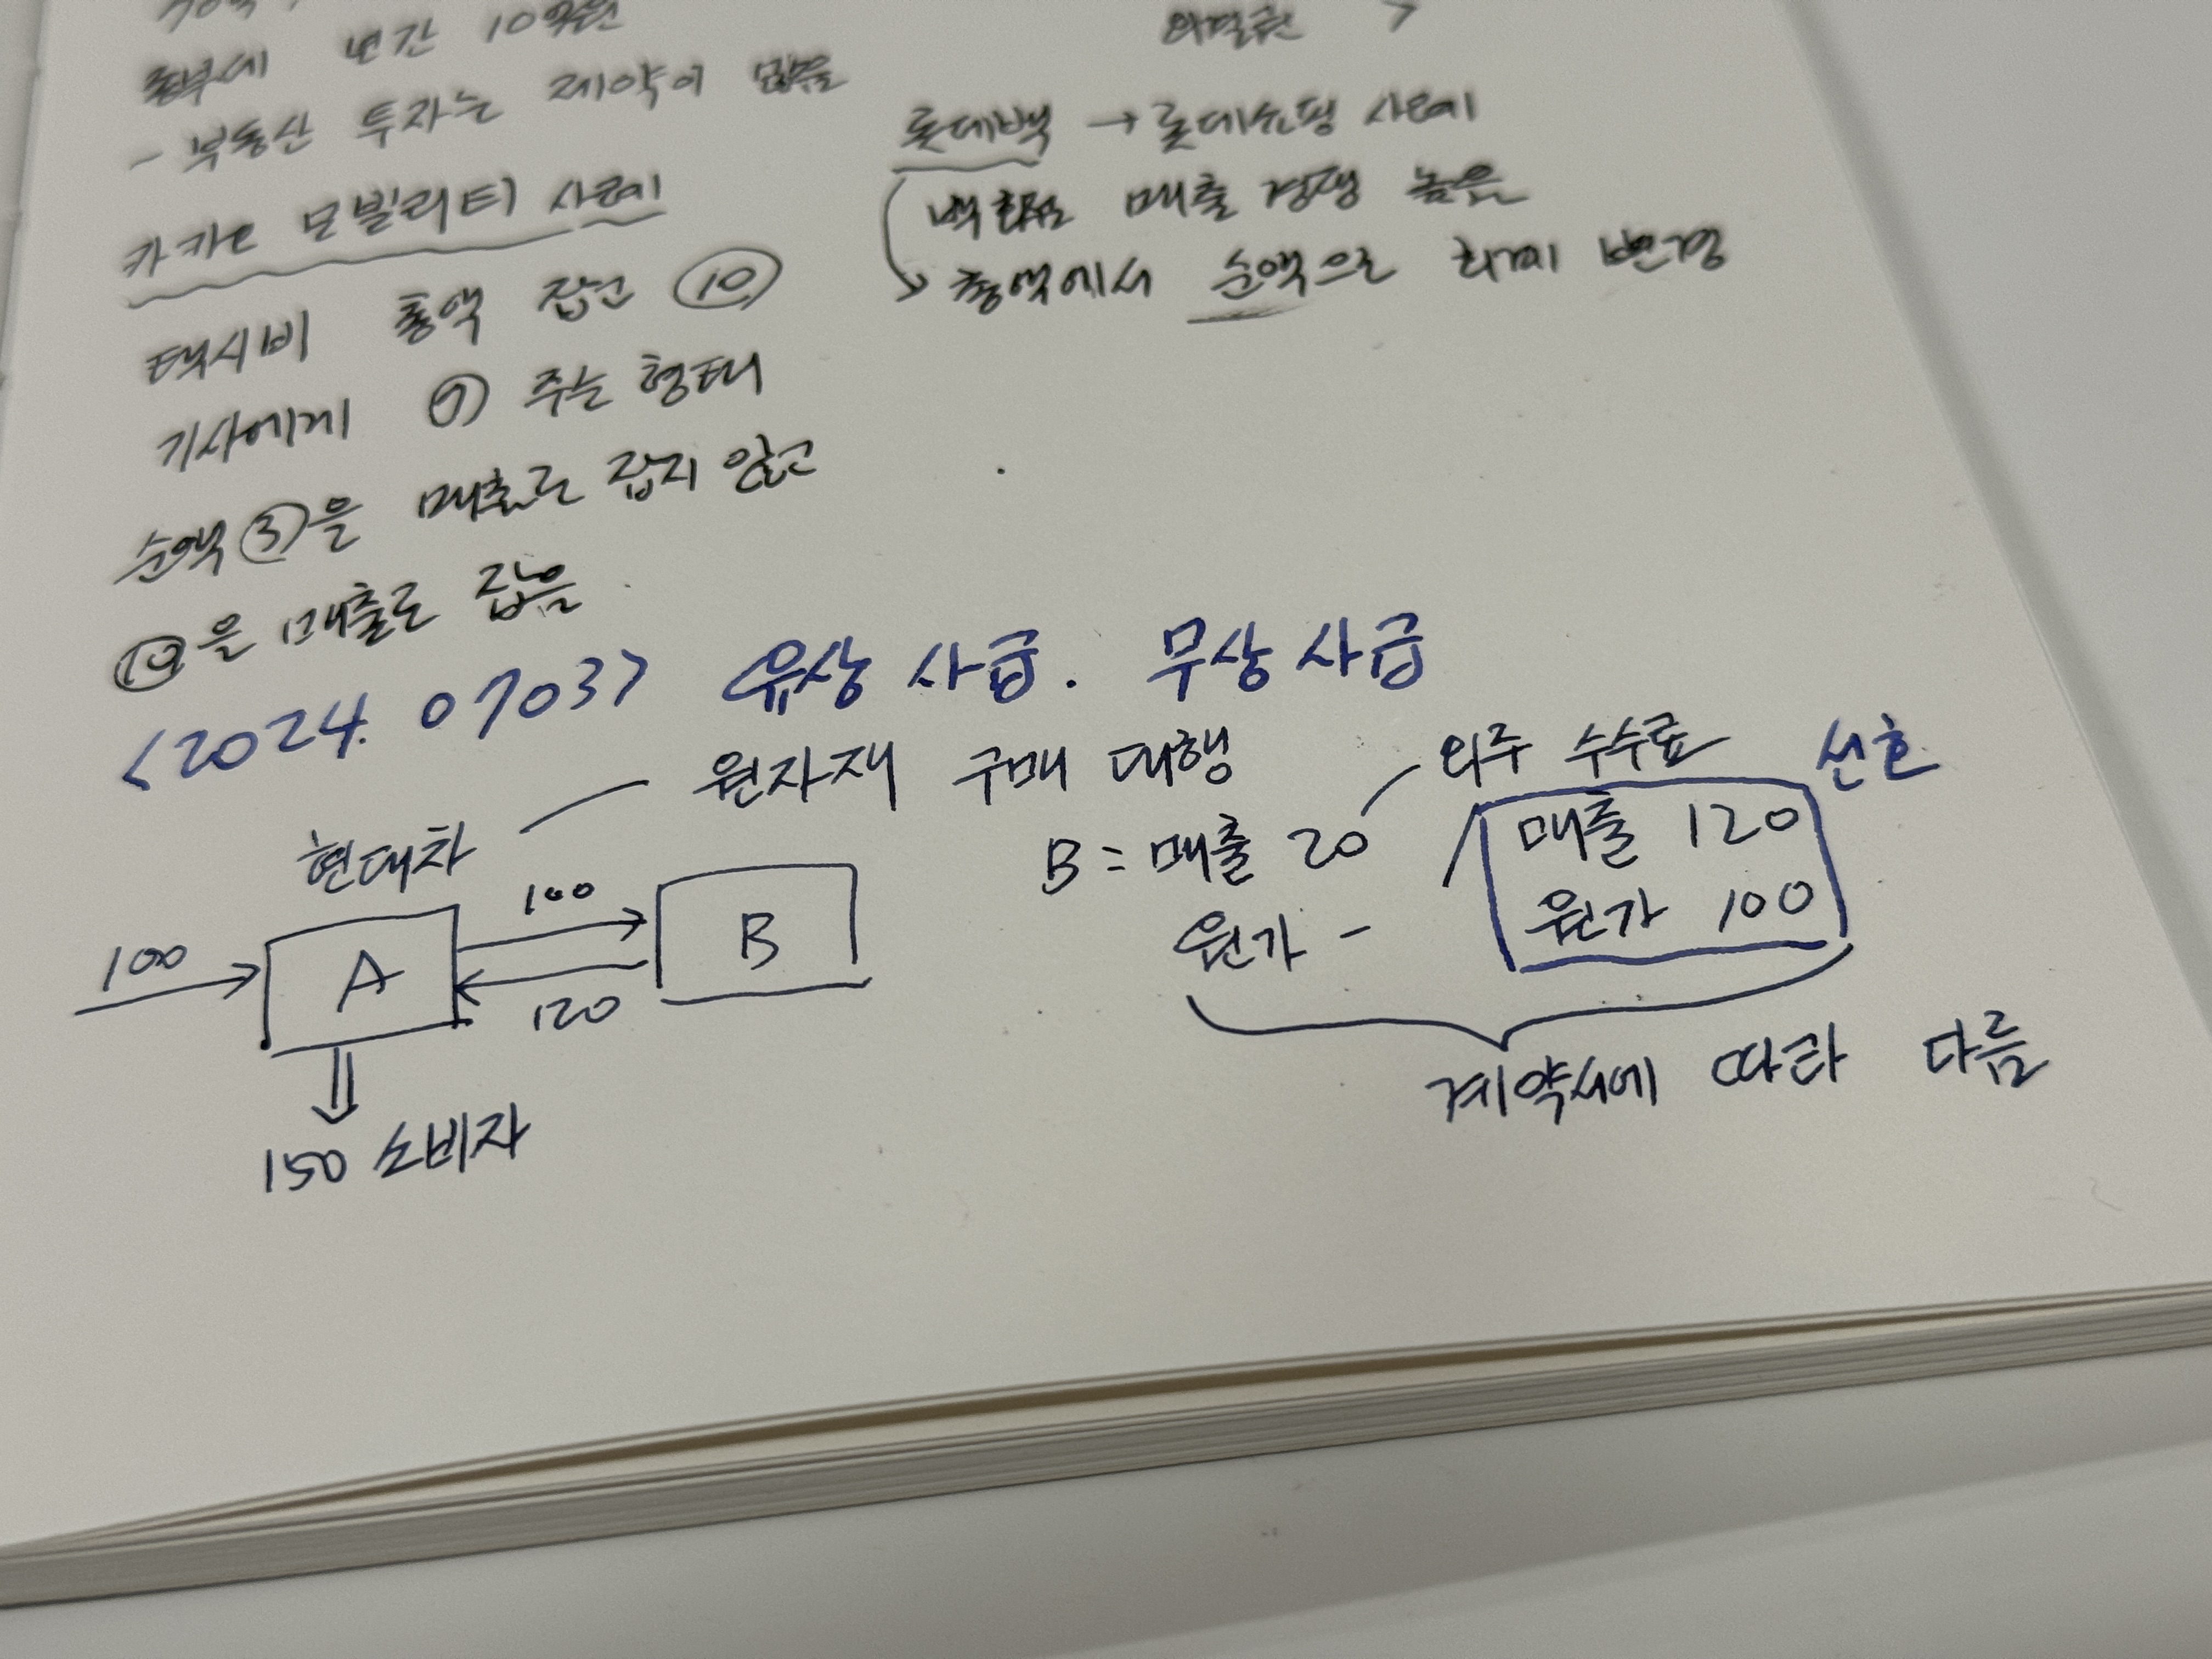 종부세 년간 10억원
- 부동산 투자는 제약이 많음
카카오 모빌리티 사례
택시비 총액 잡고 ⑩
기사에게 ⑦ 주는 형태
순액 ③을 매출로 잡지 않고
⑩을 매출로 잡음
롯데백 → 롯데쇼핑 사례
백화점 매출 경쟁 높음
총액에서 순액으로 회계 변경
<2024. 0703> 유상 사급. 무상 사급
원자재 구매 대행
현대차
100
A
100
120
B
150 소비자
외주 수수료
선호
B = 매출 20 / 매출 120
원가 - 원가 100
계약서에 따라 다름